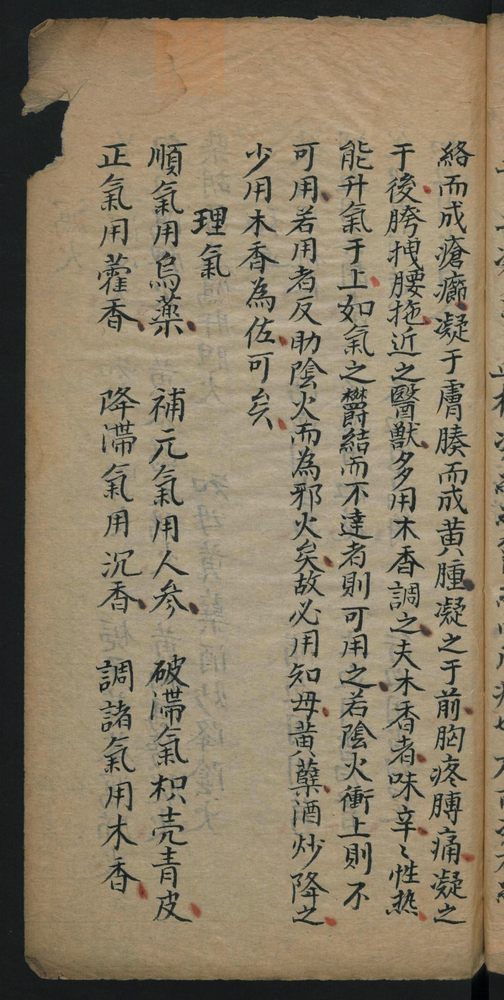 絡而成瘡癤凝于膚腠而成黃腫凝之于前胸疼膊痛凝之
于後胯拽腰拖近之醫獸多用木香調之夫木香者味辛〻性热
能升氣于上如氣之欝結而不達者則可用之若陰火衝上則不
可用若用者反助陰火而為邪火矣故必用知母黃蘗酒炒降之
少用木香為佐可矣
理氣
順氣用烏藥 補元氣用人参 破滯氣枳壳青皮
正氣用藿香 降滯氣用沉香 調諸氣用木香